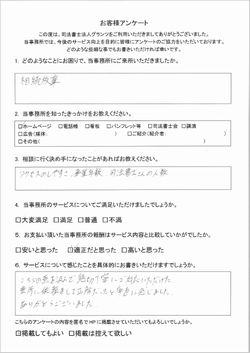 お客様アンケート
この度は、司法書士法人グランツをご利用いただきましてありがとうございました。
当事務所では、今後のサービス向上を目的に皆様にアンケートのご協力をいただいております。
どのような些細な事でもお書きいただければ幸いです。
1. どのようなことにお困りで、当事務所にご来所いただきましたか。
相続放棄
2. 当事務所を知ったきっかけをお教えください。
□ホームページ □電話帳 □看板 □パンフレット等 □司法書士会 □講演
□広告(媒体: ) □ご紹介(紹介者: )
□その他( )
3. 相談に行く決め手になったことがあればお教えください。
アクセスのしやすさ、事業年数、司法書士さんの人数
4. 当事務所のサービスについてご満足いただけましたでしょうか。
□大変満足 □満足 □普通 □不満
5. お支払い頂いた当事務所の報酬はサービス内容と比較していかがでしたか。
□安いと思った □適正だと思った □高いと思った
6. サービスについて感じたことを具体的にお書きいただけますでしょうか。
ありがとうございました
こちらのアンケートの内容を匿名でHPに掲載させていただいてもよろしいでしょうか。
□掲載してもよい □掲載は控えて欲しい